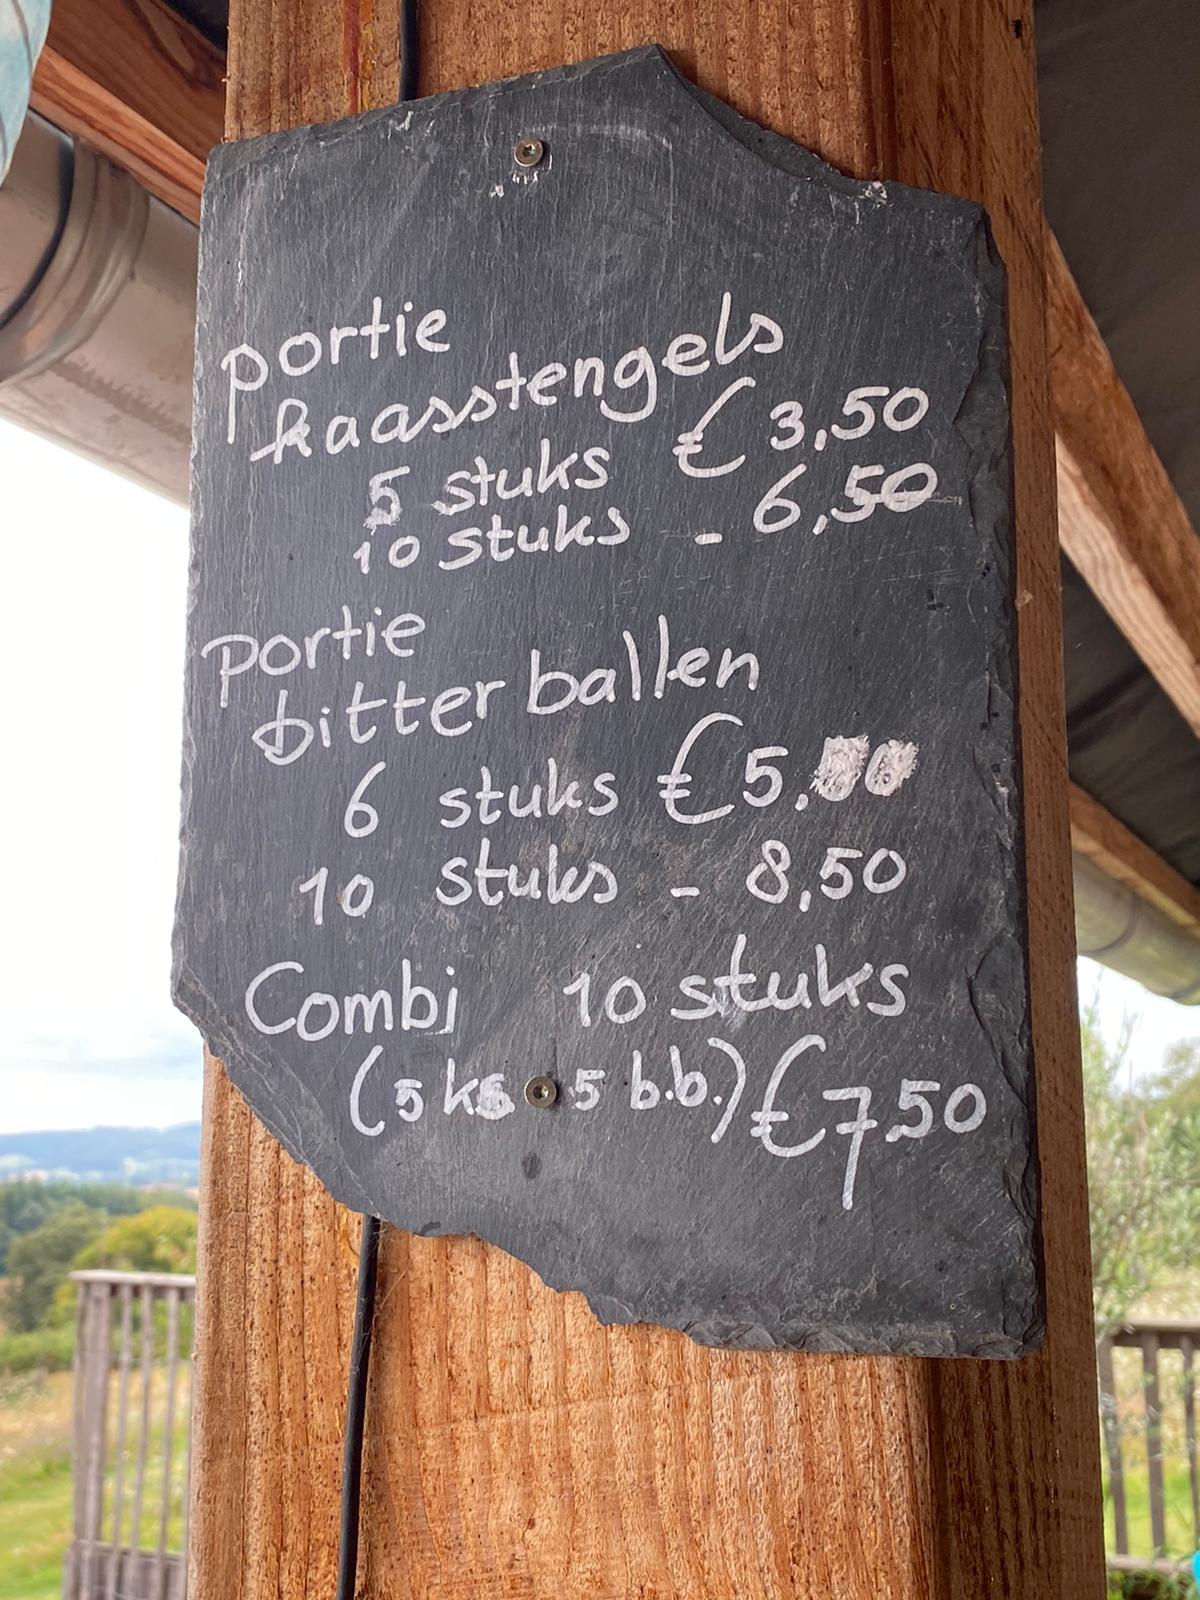 portie
kaasstengels
5 stuks € 3,50
10 stuks - 6,50
portie
bitterballen
6 stuks € 5,00
10 stuks - 8,50
Combi 10 stuks
(5 ks 5 b.b.) € 7,50